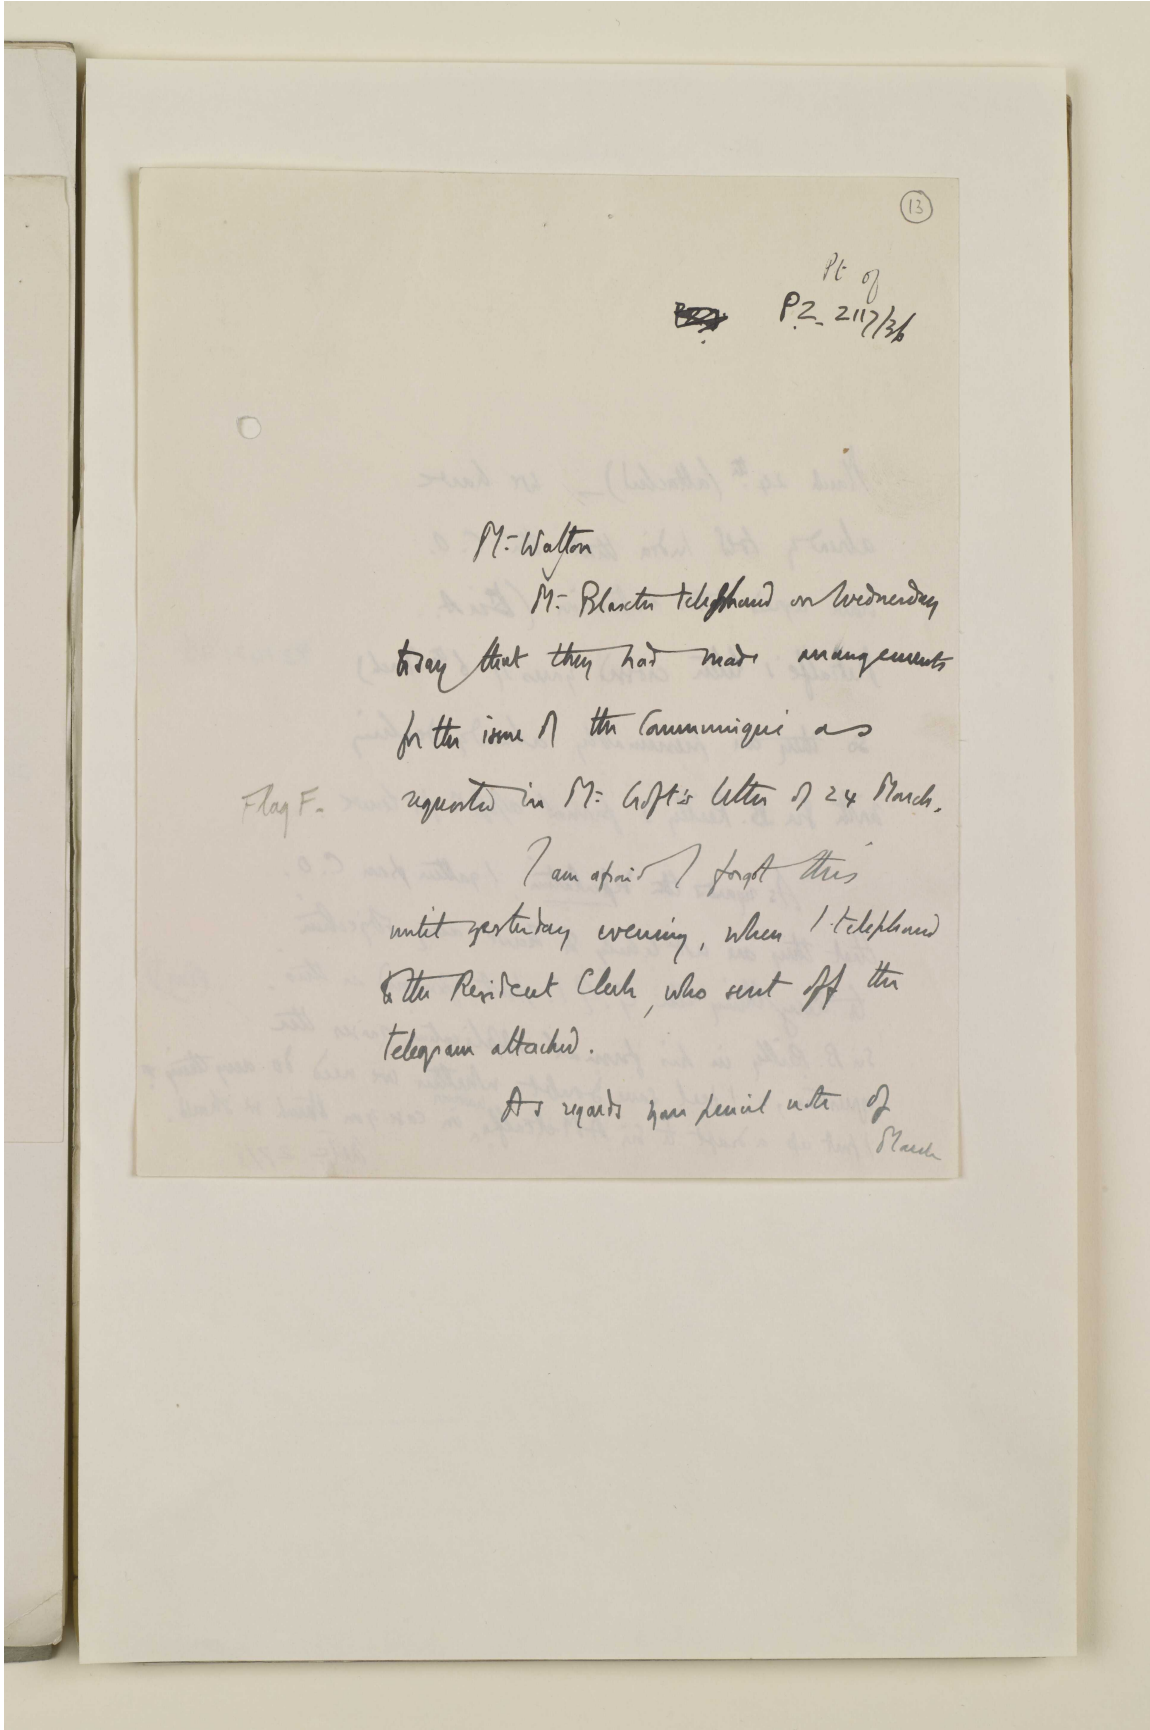 13
Pt of
P.Z. 2117/36
Mr Walton
Mr Blaxter telephoned on Wednesday
to say that they had made arrangements
for the issue of the Communiqué as
Flag F. requested in Mr Croft's letter of 24 March.
I am afraid I forgot this
until yesterday evening, when I telephoned
to the Resident Clerk, who sent off the
telegram attached.
As regards your pencil note of
March